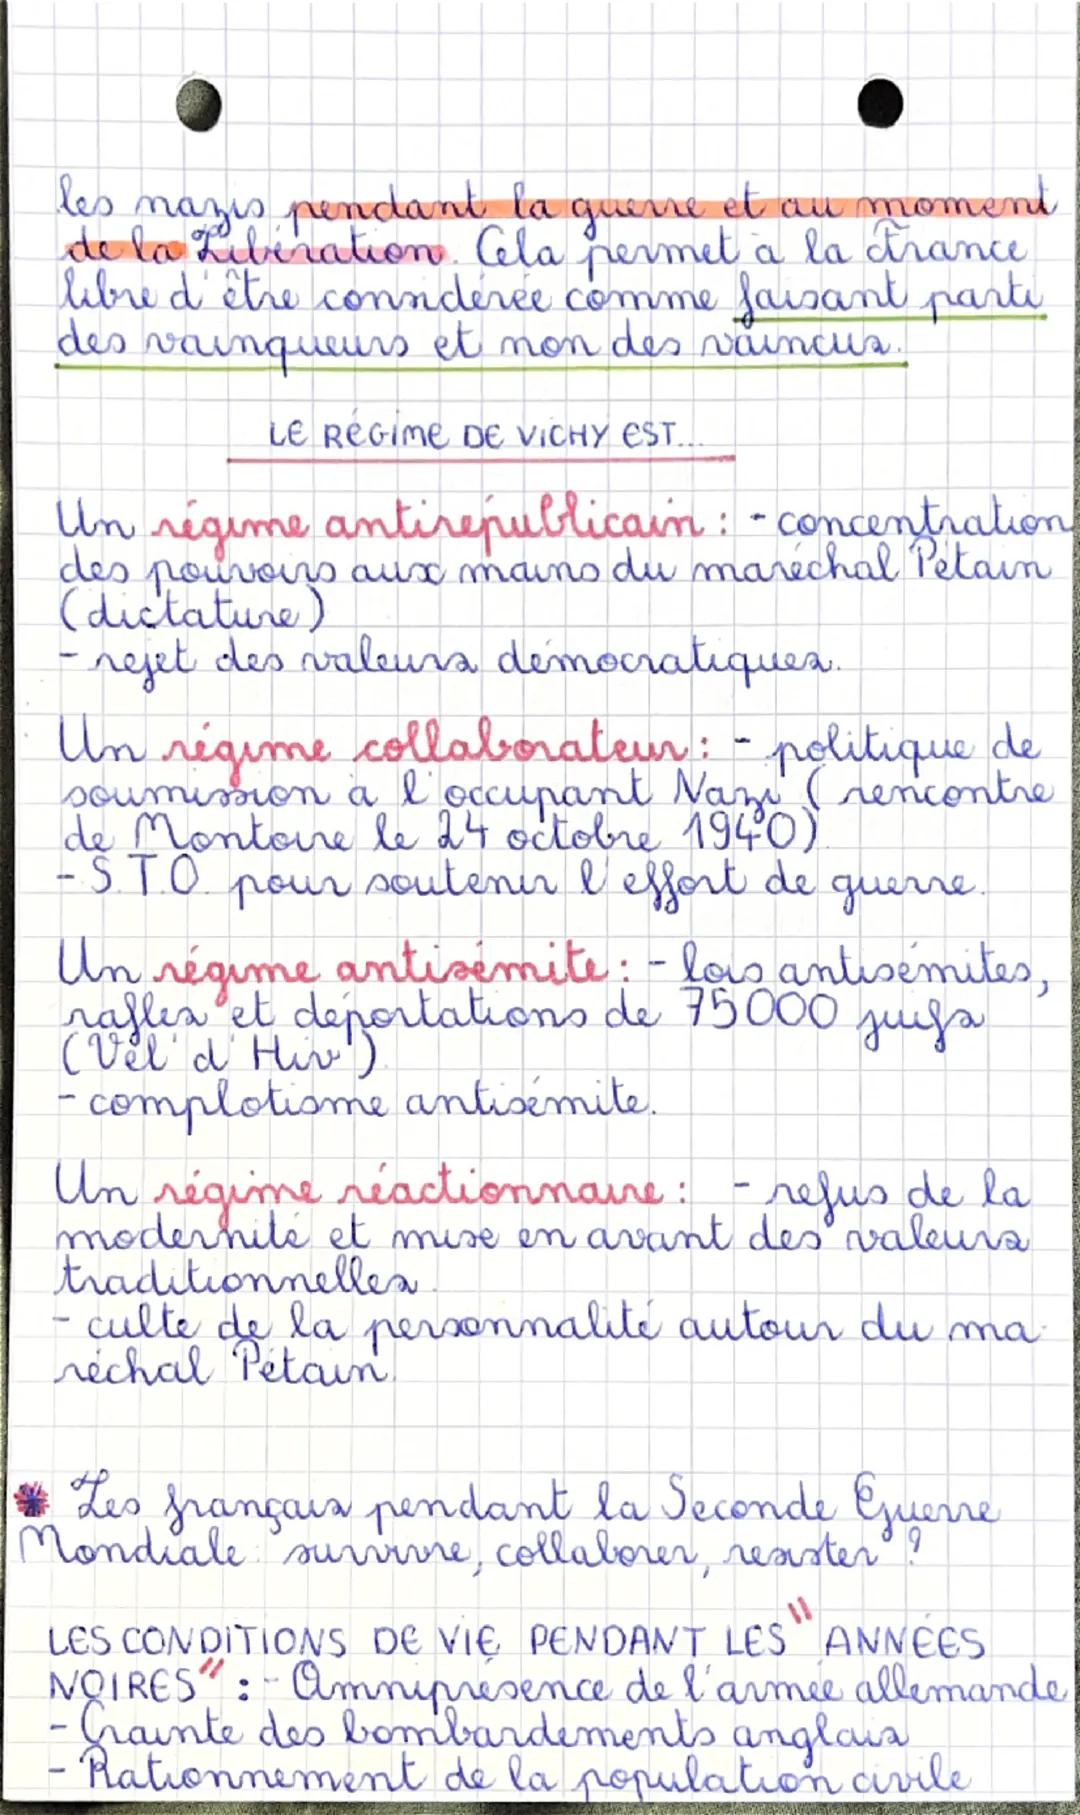 les nazis pendant la guerre et au moment
de la Libération. Cela permet à la France
libre d'être considérée comme faisant parti
des vainqueurs et non des vaincus.
LE RÉGIME DE VICHY EST...
Un régime antirépublicain : - concentration
des pouvoirs aux mains du maréchal Pétain
(dictature)
- rejet des valeurs démocratiques.
Un régime collaborateur : - politique de
soumission à l'occupant Nazi (rencontre
de Montoire le 24 octobre 1940)
- S.T.O. pour soutenir l'effort de guerre.
Un régime antisémite : - lois antisémites,
rafles et déportations de 75000 juifs
(Vel' d'Hiv')
- complotisme antisémite.
Un régime réactionnaire : - refus de la
modernité et mise en avant des valeurs
traditionnelles.
- culte de la personnalité autour du ma-
réchal Pétain.
* Les français pendant la Seconde Guerre
Mondiale : survivre, collaborer, resister ?
LES CONDITIONS DE VIE PENDANT LES "ANNÉES
NOIRES" : - Omniprésence de l'armée allemande
- Crainte des bombardements anglais
- Rationnement de la population civile